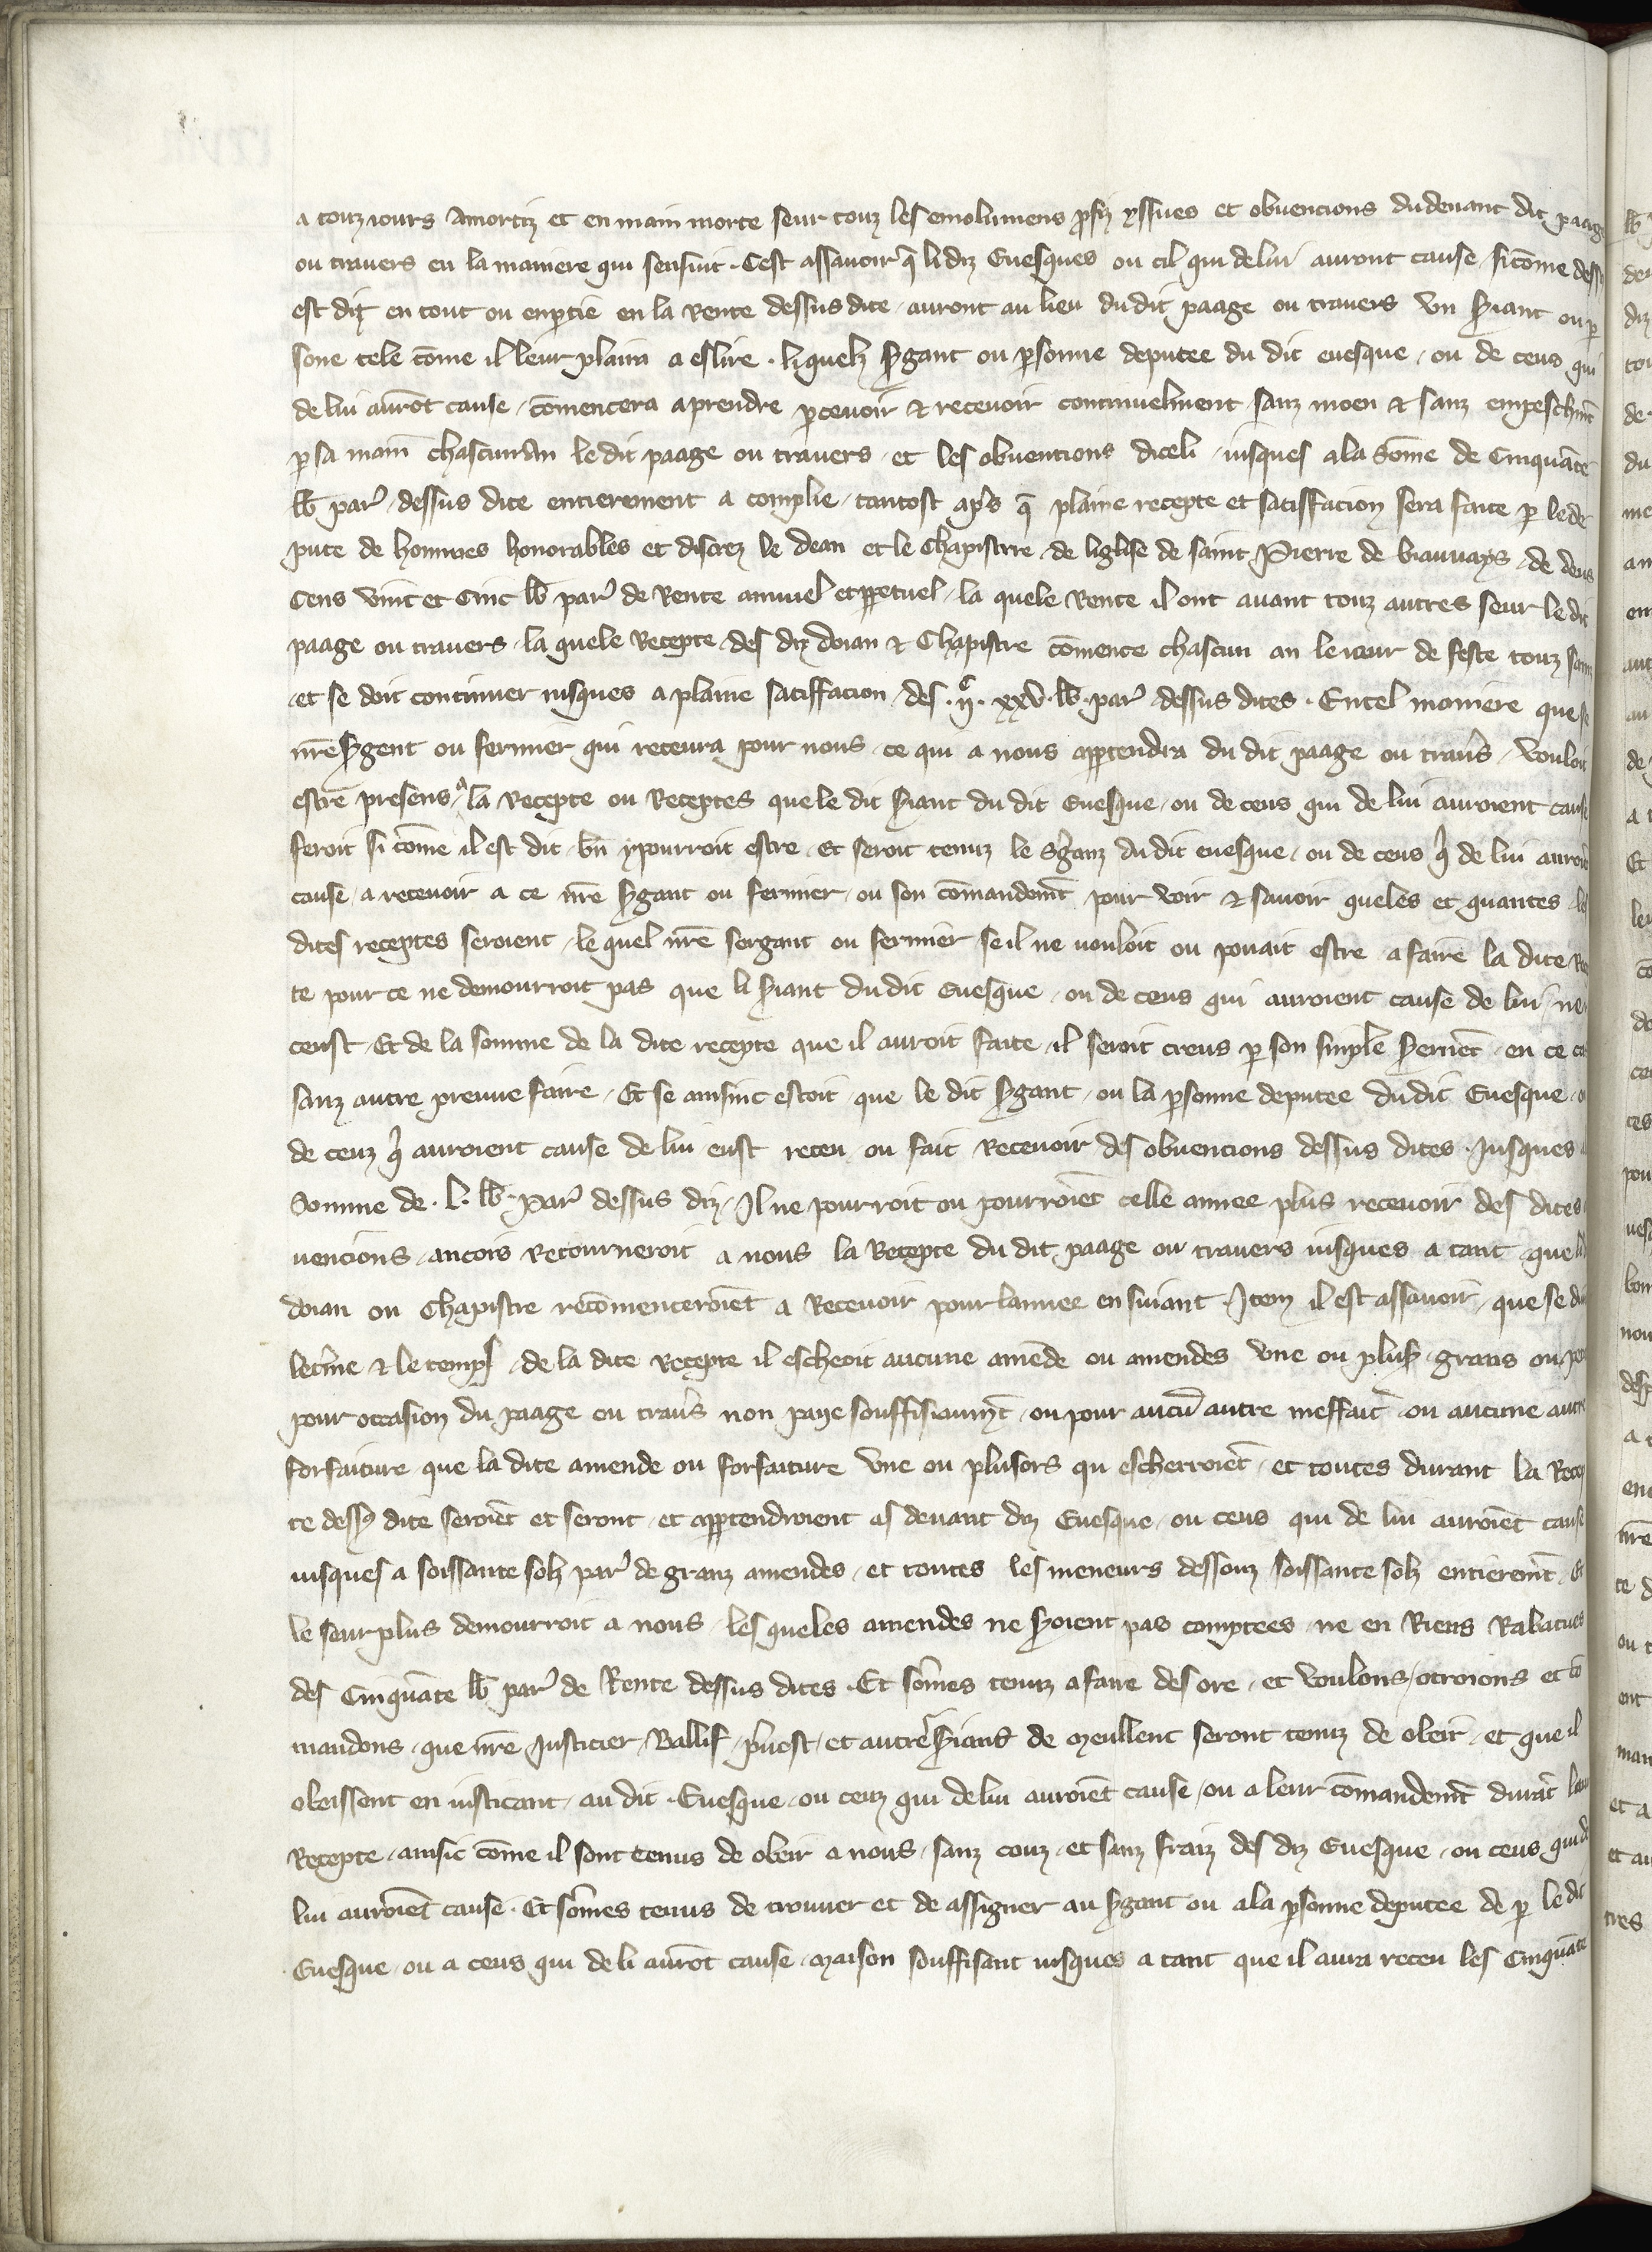 a touz iours amortiz et en main morte seur touz les emolumens ꝓfiz yssues et obuencions du deuant dit paage
ou trauers en la maniere qui sensuit . Cest assauoir q̄ li diz Euesques ou cil qui de lui auront cause si cōme dess
est dit en tout ou en ꝑtie en la Rente dessus dite auront au lieu du dit paage ou trauers vn Sɉiant ou ꝑ
sone tele cōme il leur plaira a eslire . li quelz Sɉgant ou ꝑsonne deputee du dit euesque ou de ceus qui
de lui aurōt cause cōmencera a prendre ꝑceuoir & receuoir continuelment sanz moen & sanz empeschmēt
ꝑ sa main chascun an le dit paage ou trauers et les obuentions diceli iusques a la Sōme de Cinquāte
lb̄ par̉ dessus dite entierement a complie tantost ap̉s q̄ plaine recepte et satisfacion sera faite ꝑ le de
pute de hommes honorables et discrez le dean et le Chapistre de liglise de saint Pierre de biauuays de deus
Cens vint et Cinc lb̄ par̉ de Rente annuel et ꝑpetuel la quele Rente il ont auant touz autres seur le dit
paage ou trauers la quele Recepte des diz doian & Chapistre cōmence chascun an le iour de feste touz sains
et se doit continuer iusques a plaine satisfacion des . ijᶜ . xxv . lb̄ par̉ dessus dites . En tel maniere que se
nr̄e Sɉgent ou fermier qui receura pour nous ce qui a nous apꝑtendra du dit paage ou traủs vouloit
estre presens a la Recepte ou Receptes que le dit Sɉiant du dit Euesque ou de ceus qui de lui auroient cause
feroit si cōme il est dit bn̄ y pourroit estre et seroit tenuz le S̉ganz du dit euesque ou de ceus q̉ de lui auroiēt
cause a receuoir a ce nr̄e Sɉgant ou fermier ou son cōmandemēt pour voir & sauoir queles et quantes les
dites receptes seroient le quel nr̄e sergant ou fermier se il ne vouloit ou pouait estre a faire la dite Rec
te pour ce ne demourroit pas que li Sɉiant du dit Euesque ou de ceus qui auroient cause de lui ne
ceust Et de la somme de la dite recepte que il auroit faite il seroit creus ꝑ son simple Sɉemēt en ce cas
sanz autre preuue faire Et se ainsinc estoit que le dit Sɉgant ou la ꝑsonne deputee du dit Euesque ou
de ceuz q̉ auroient cause de lui eust receu ou fait Receuoir des obuencions dessus dites . Jusques a
Somme de . L . lb̄ . Par̉ dessus diz Il ne pourroit ou pourroiēt celle annee plus receuoir des dites
uencions ancois retourneroit a nous la Recepte du dit paage ou trauers iusques a tant que li
doian ou Chapistre recōmenceroiēt a Receuoir pour lannee ensuiant . Item il est assauoir que se du
le t̉me & le temps de la dite Recepte il escheoit aucune amēde ou amendes vne ou plus̉ grans ou pe
pour occasion du paage ou traủs non paye souffisiaumēt ou pour aucū autre meffait ou aucune autre
forfaiture que la dite amende ou forfaiture vne ou plusors qui escherroiēt et toutes durant la Recep
te dess̉ dite seroiēt et seront et apꝑtendroient as deuant diz Euesque ou ceus qui de lui auroiēt cause
iusques a soissante solz par̉ de granz amendes et toutes les meneurs dessouz soissante solz entieremēt . Et
le seurplus demourroit a nous les queles amendes ne Sɉoient pas comptees ne en Riens Rabatues
des Cinquāte lb̄ par̉ de Rente dessus dites . Et sōmes tenuz a faire des ore et voulons otroions et cō
mandons que nr̄e Justicier Ballif p̉uost et autre Sɉians de Meullent seront tenuz de obeir et que il
obeissent en iusticant au dit . Euesque ou ceuz qui de lui auroiēt cause ou a leur cōmandemēt durāt la
Recepte ainsic cōme il sont tenus de obeir a nous sanz couz et sanz fraiz des diz Euesque ou ceus qui de
lui auroiēt cause . Et sōmes tenus de trouuer et de assigner au Sɉgant ou a la ꝑsonne deputee de ꝑ le dit
Euesque ou a ceus qui de li aurōt cause Maison souffisant iusques a tant que il aura receu les Cinquāte